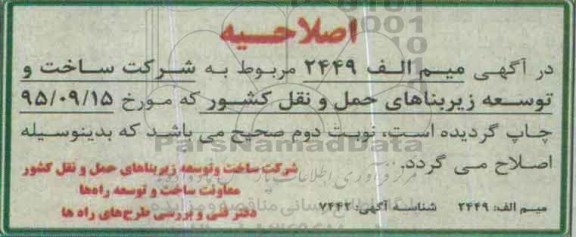 اصلاحیه
در آگهی میم الف ۲۴۴۹ مربوط به شرکت ساخت و
توسعه زیربناهای حمل و نقل کشور که مورخ ۹۵/۰۹/۱۵
چاپ گردیده است، نوبت دوم صحیح می باشد که بدینوسیله
اصلاح می گردد.
شرکت ساخت وتوسعه زیربناهای حمل و نقل کشور
معاونت ساخت و توسعه راه‌ها
دفتر فنی و بررسی طرح‌های راه ها
میم الف: ۲۴۴۹ شناسه آگهی: ۷۴۴۲
ParsNamadData